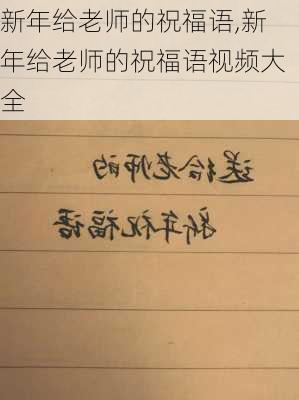 新年给老师的祝福语,新
年给老师的祝福语视频大
全
送给老师的
新年祝福语